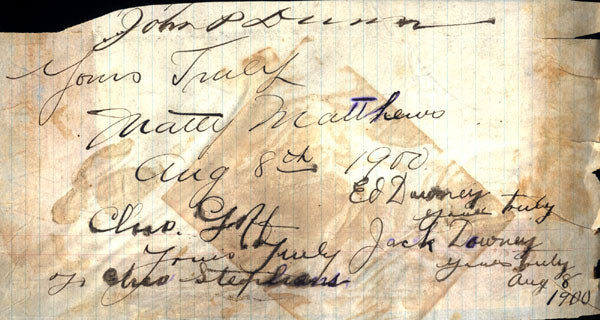 John P Dunn
Yours Truly
Matty Matthews
Aug 8th 1900
Ed Downey
yours truly
Chas. Goff
Jack Downey
Yours Truly
yours truly
Chas Stephans
Aug 8
1900